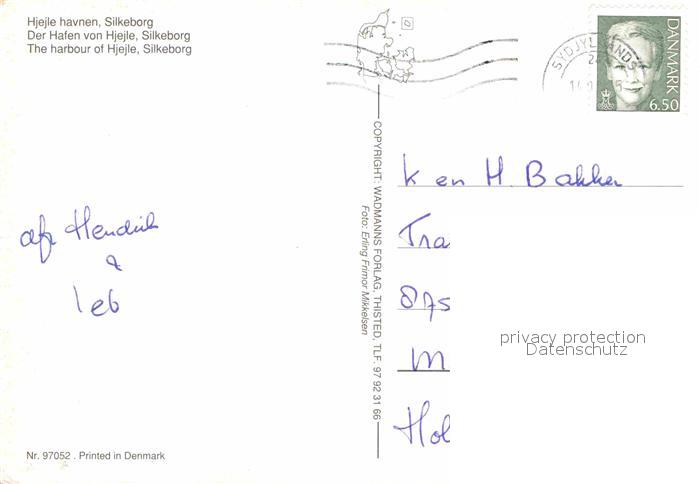 Hjejle havnen, Silkeborg
Der Hafen von Hjejle, Silkeborg
The harbour of Hjejle, Silkeborg
DANMARK
6.50
COPYRIGHT: WADMANNS FORLAG, THISTED, TLF. 97 92 31 66
Foto: Erling Frimor Mikkelsen
K en H. Bakker
Tra
875
M
Hol
afz Hendrik
&
Ieb
privacy protection
Datenschutz
Nr. 97052 . Printed in Denmark